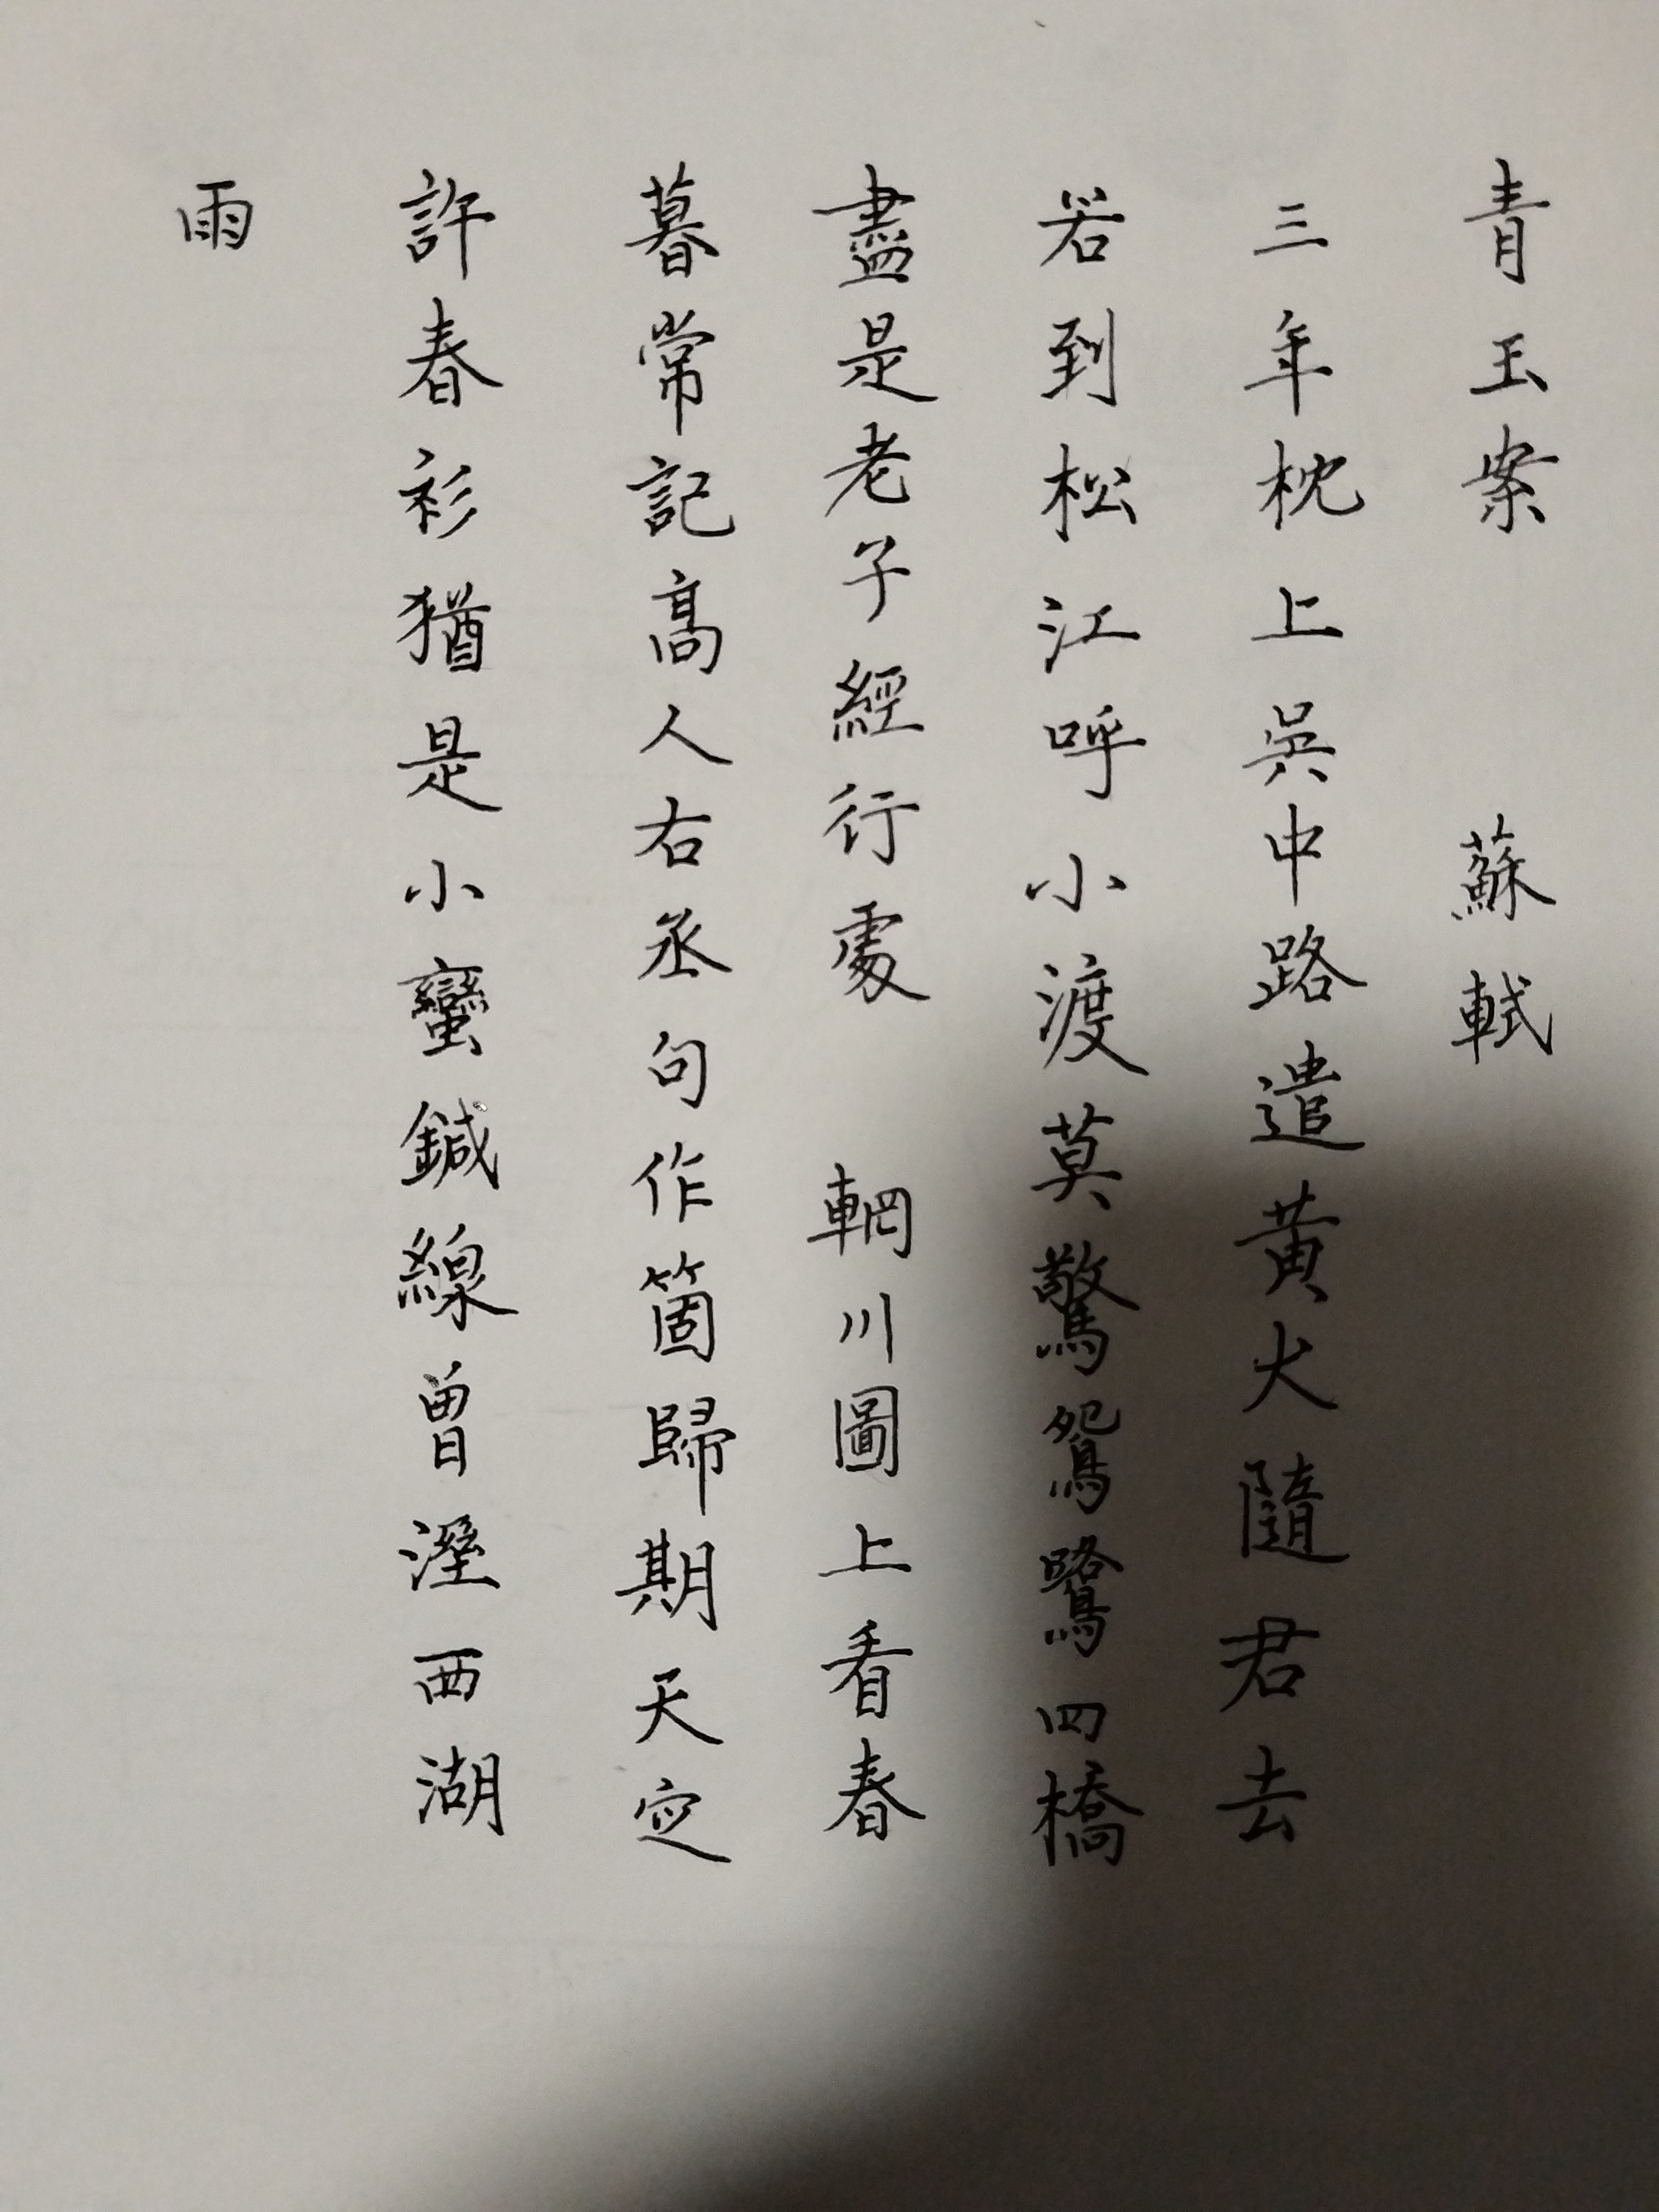 青玉案 蘇軾
三年枕上吳中路遣黄犬隨君去
若到松江呼小渡莫驚鴛鷺四橋
盡是老子經行處 輞川圖上看春
暮常記高人右丞句作箇歸期天定
許春衫猶是小蠻鍼線曾溼西湖
雨